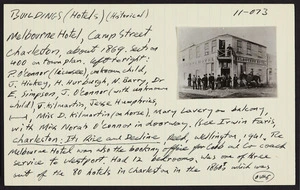 BUILDINGS (Hotels) (Historical)
11-073
Melbourne Hotel, Camp Street
Charleston, about 1869. Section
400 on town plan. Left to right:
P. O'Connor (licensee), unknown child,
J. Hickey, H. Hurbugh, N. Barry, Dr
E. Simpson, J. O'Connor (with unknown
child), J. Kilmartin, Jesse Humphries,
(—), Miss D. Kilmartin (on horse), Mary Lavery on balcony,
with Miss Norah O'Connor in doorway. Ref. Irwin Faris,
Charleston: Its Rise and Decline, Reed, Wellington, 1941. The
Melbourne Hotel was also the booking office for Cobb and Co coach
service to Westport. Had 12 bedrooms. Was one of three
out of the 80 hotels in Charleston in the 1860s which was